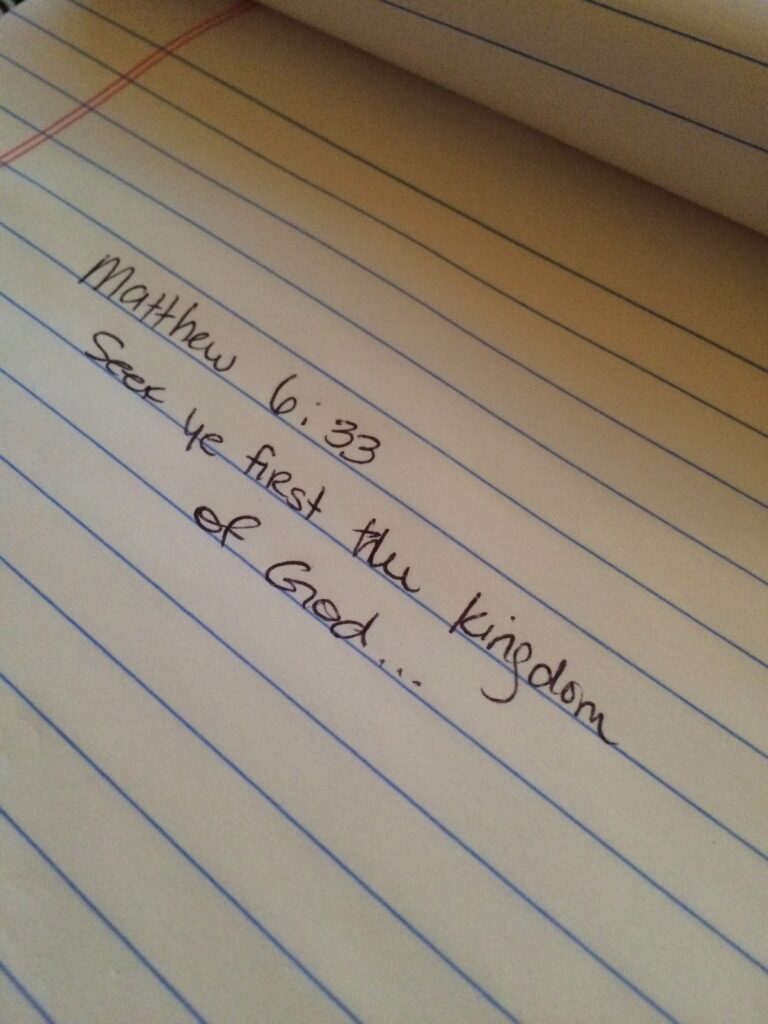 Matthew 6:33
Seek ye first the kingdom
of God...